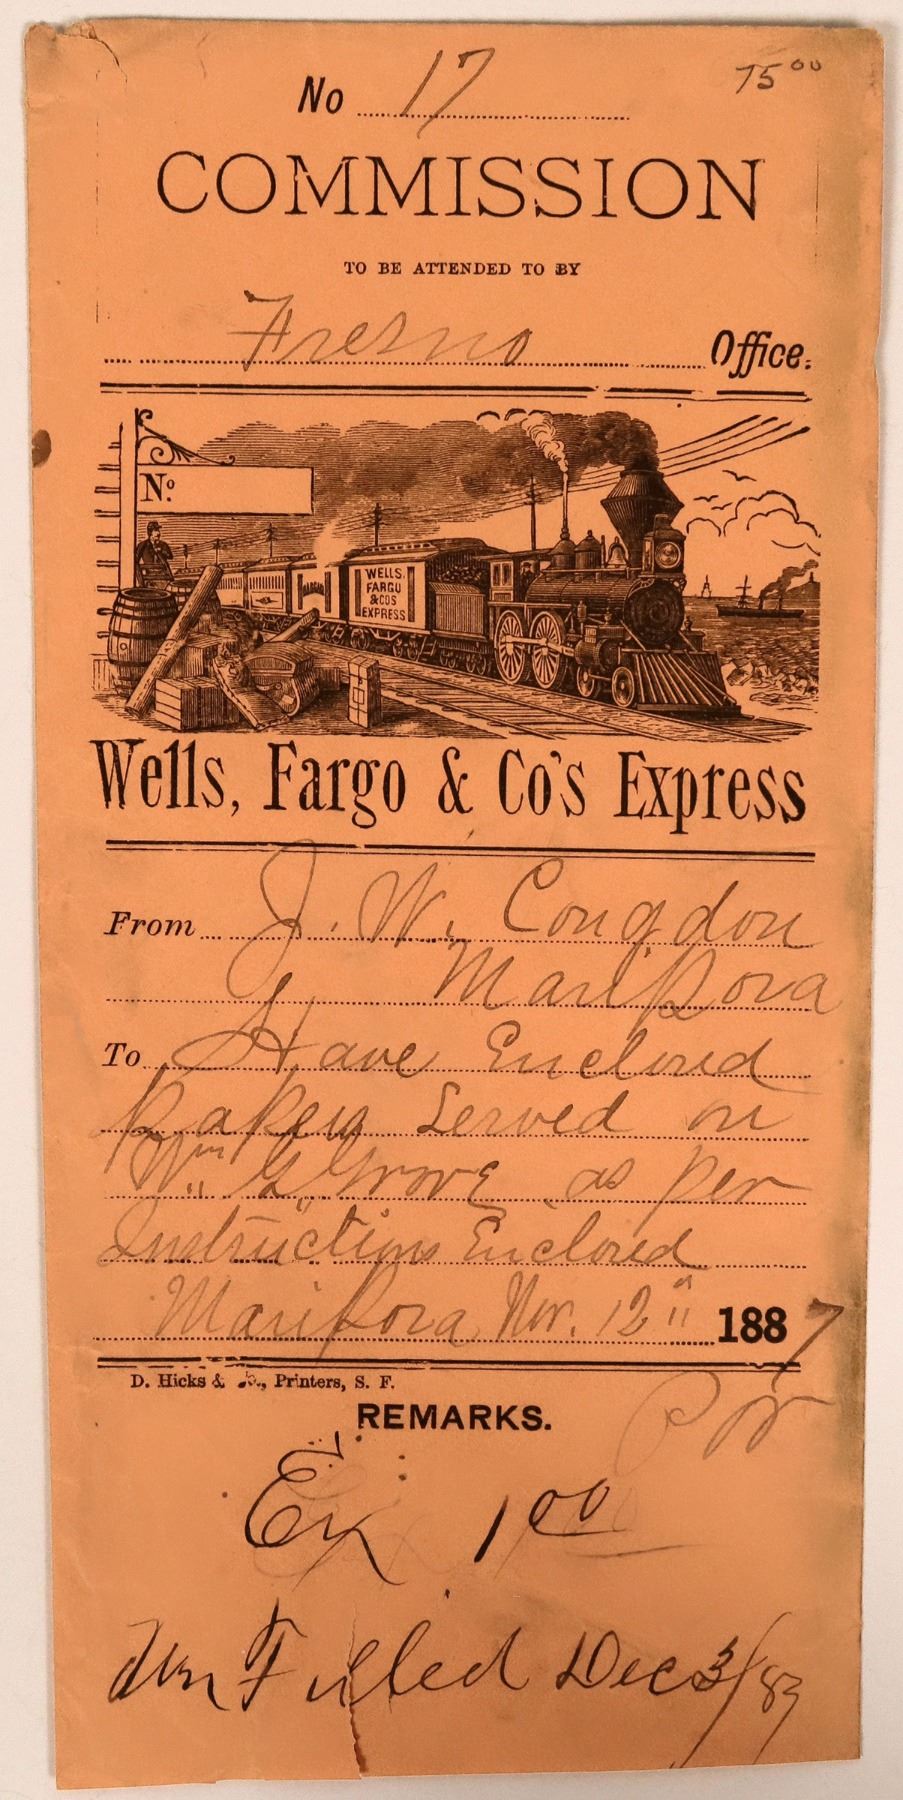 No 17
75 00
COMMISSION
TO BE ATTENDED TO BY
Fresno Office.
No.
WELLS,
FARGO
& COS
EXPRESS
Wells, Fargo & Co's Express
From J. W. Congdon
Mariposa
To Have Enclosed
Papers Served on
Wm G Grove as per
Instructions Enclosed
Mariposa Nov. 12" 1887
D. Hicks & Co., Printers, S. F.
REMARKS.
Ex 1 00
Filled Dec 3/87